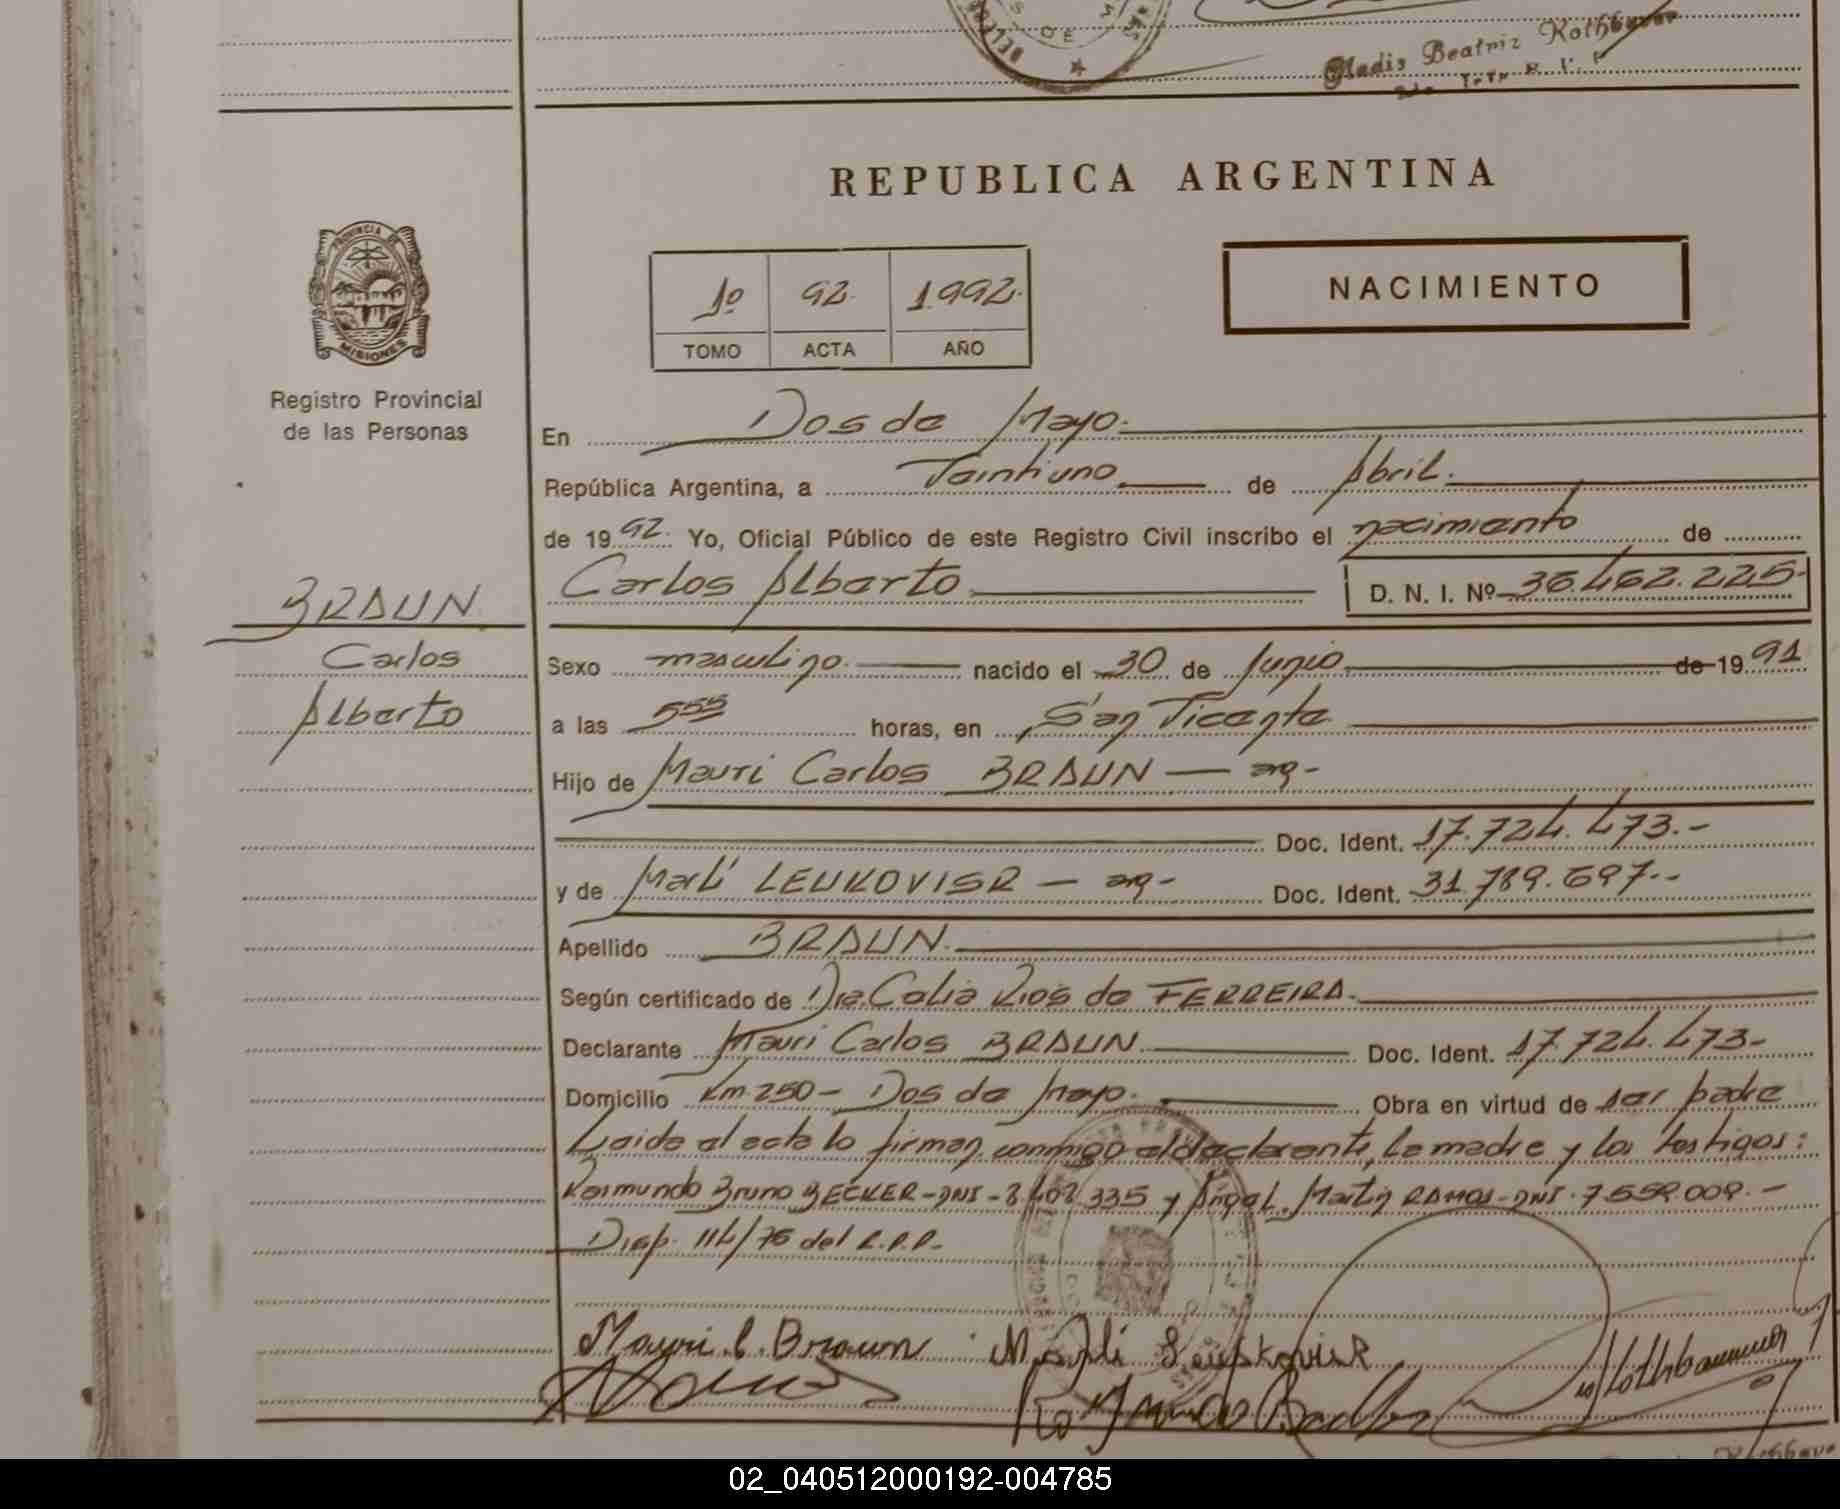 Gladis Beatriz Rothbauer
REPUBLICA ARGENTINA
PROVINCIA DE
MISIONES
Registro Provincial
de las Personas
1º 92 1992
TOMO ACTA AÑO
NACIMIENTO
En Dos de Mayo.
República Argentina, a Veintiuno de Abril.
de 1992. Yo, Oficial Público de este Registro Civil inscribo el nacimiento de
Carlos Alberto D. N. I. Nº 36.462.225-
BRAUN
Carlos
Alberto
Sexo masculino. nacido el 30 de Junio de 1991
a las 5 55 horas, en San Vicente
Hijo de Mauri Carlos BRAUN — arg-
Doc. Ident. 17.724.473.-
y de Marli LEUKOVISR — arg- Doc. Ident. 31.789.697.-
Apellido BRAUN.
Según certificado de Dra. Celia Rios de FERREIRA.
Declarante Mauri Carlos BRAUN Doc. Ident. 17.724.473-
Domicilio Km. 250 - Dos de Mayo. Obra en virtud de ser padre
Leida el acta lo firman conmigo el declarante, la madre y los testigos:
Raimundo Bruno BECKER - DNI - 8.402.335 y Angel Martin RAMOS - DNI. 7.559.009.-
Disp. 114/76 del R.P.P.-
Mauri. C. Braun Marli
02_040512000192-004785